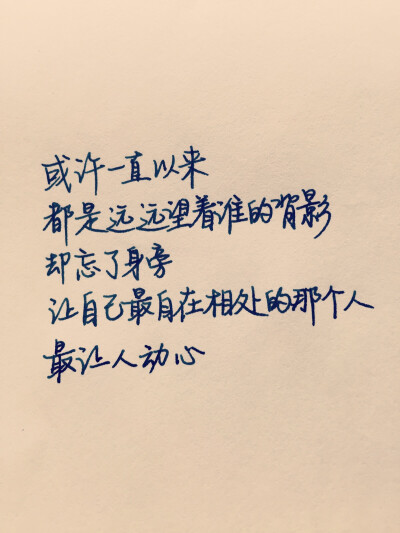 或许一直以来
都是远远望着谁的背影
却忘了身旁
让自己最自在相处的那个人
最让人动心